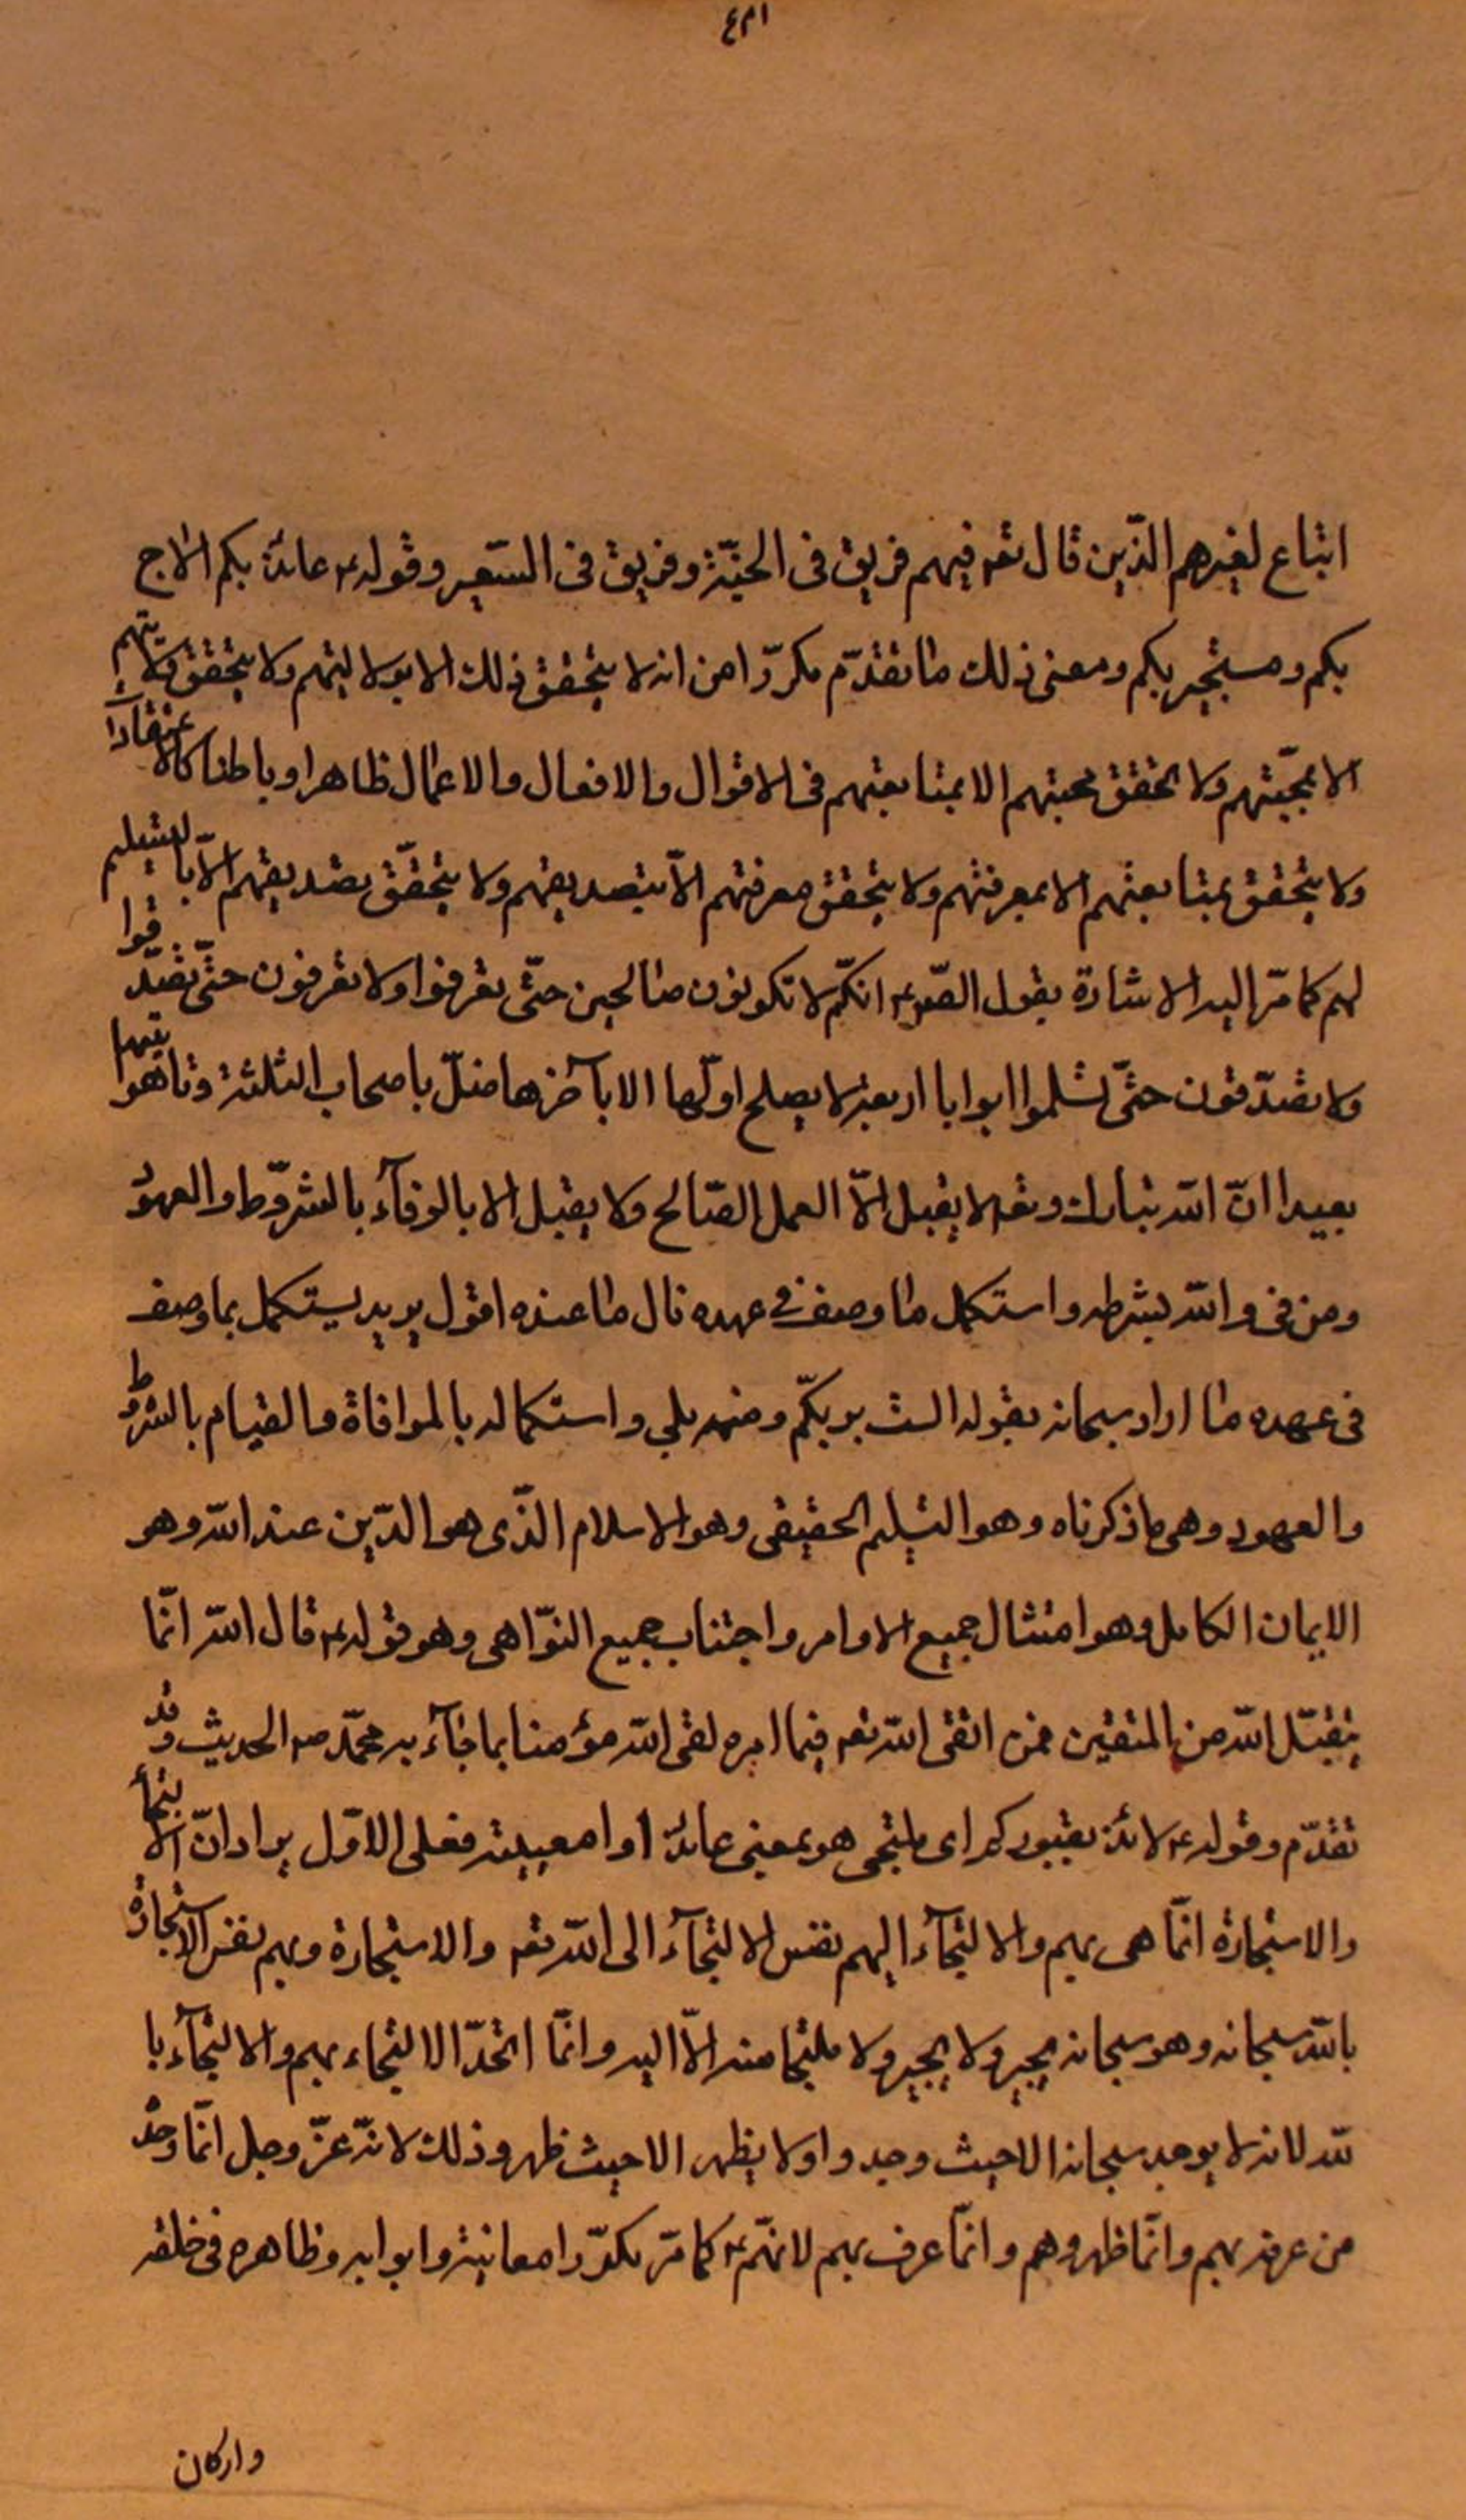 ۴۳۱
اتباع لغيرهم الذّين قال تعه فيهم فريق فى الجنّة وفريق فى السّعير وقوله ع عائذ بكم الاج
بكم ومستجير بكم ومعنى ذلك ما تقدّم مكررّا من انه لا يتحقق ذلك الا بولايتهم ولا يتحقق ولايتهم
الا بمحبّتهم ولا تحقق محبتهم الا بمتابعتهم فى الاقوال والافعال والاعمال ظاهرا وباطنا كالاعتقادآ
ولا يتحقق بمتابعتهم الا بمعرفتهم ولا يتحقق معرفتهم الّا بتصديقهم ولا يتحقّق تصديقهم الّا بالتسليم
لهم كما مرّ اليه الاشارة بقول الصّ ع انكّم لا تكونون صالحين حتّى تعرفوا ولا تعرفون حتّى تصدّقوا
ولا تصدّقون حتّى تسلموا ابوابا اربعة لا يصلح اولّها الا بآخرها ضلّ باصحاب الثلثة وتاهوا تيها
بعيدا انّ الله تبارك وتعه لا يقبل الّا العمل الصّالح ولا يقبل الا بالوفآء بالشروّط والعهود
ومن فى والله بشرطه واستكمل ما وصف فى عهده نال ما عنده اقول يريد يستكمل بما وصف
فى عهده ما اراد سبحانه بقوله الست بربكمّ ومنهم بلى واستكماله بالموافاة والقيام بالشروط
والعهود وهى ما ذكرناه وهو التسليم الحقيقى وهو الاسلام الذّى هو الدّين عند الله وهو
الايمان الكامل وهو امتثال جميع الاوامر واجتناب جميع النوّاهى وهو قوله ع قال الله انّما
يتقبّل الله من المتقين فمن اتقى الله تعه فيما امره لقى الله مؤمنا بما جآء به محمّد ص الحديث وقد
تقدّم وقوله ع لائذ بقبوركم اى ملتجى هو بمعنى عائذ او امعيته فعلى الاوّل يراد انّ الالتجأ
والاستجارة انّما هى بهم والالتجآء اليهم نفس الالتجآء الى الله تعه والاستجارة وبهم نفس الاستجارة
بالله سبحانه وهو سبحانه يجير ولا يجير ولا ملتجا منه الّا اليه وانّما اتحّد الالتجاء بهم والالتجآء با
لله لانه لا يوجد سبحانه الا حيث وجدوا ولا يظهر الا حيث ظهر وذلك لانّه عزّ وجل انّما وحّد
من عرفه بهم وانّما ظهر وهم وانّما عرف بهم لانهّم ع كما مرّ مكرّرا معانيه وابوابه وظاهره فى خلقه
واركان